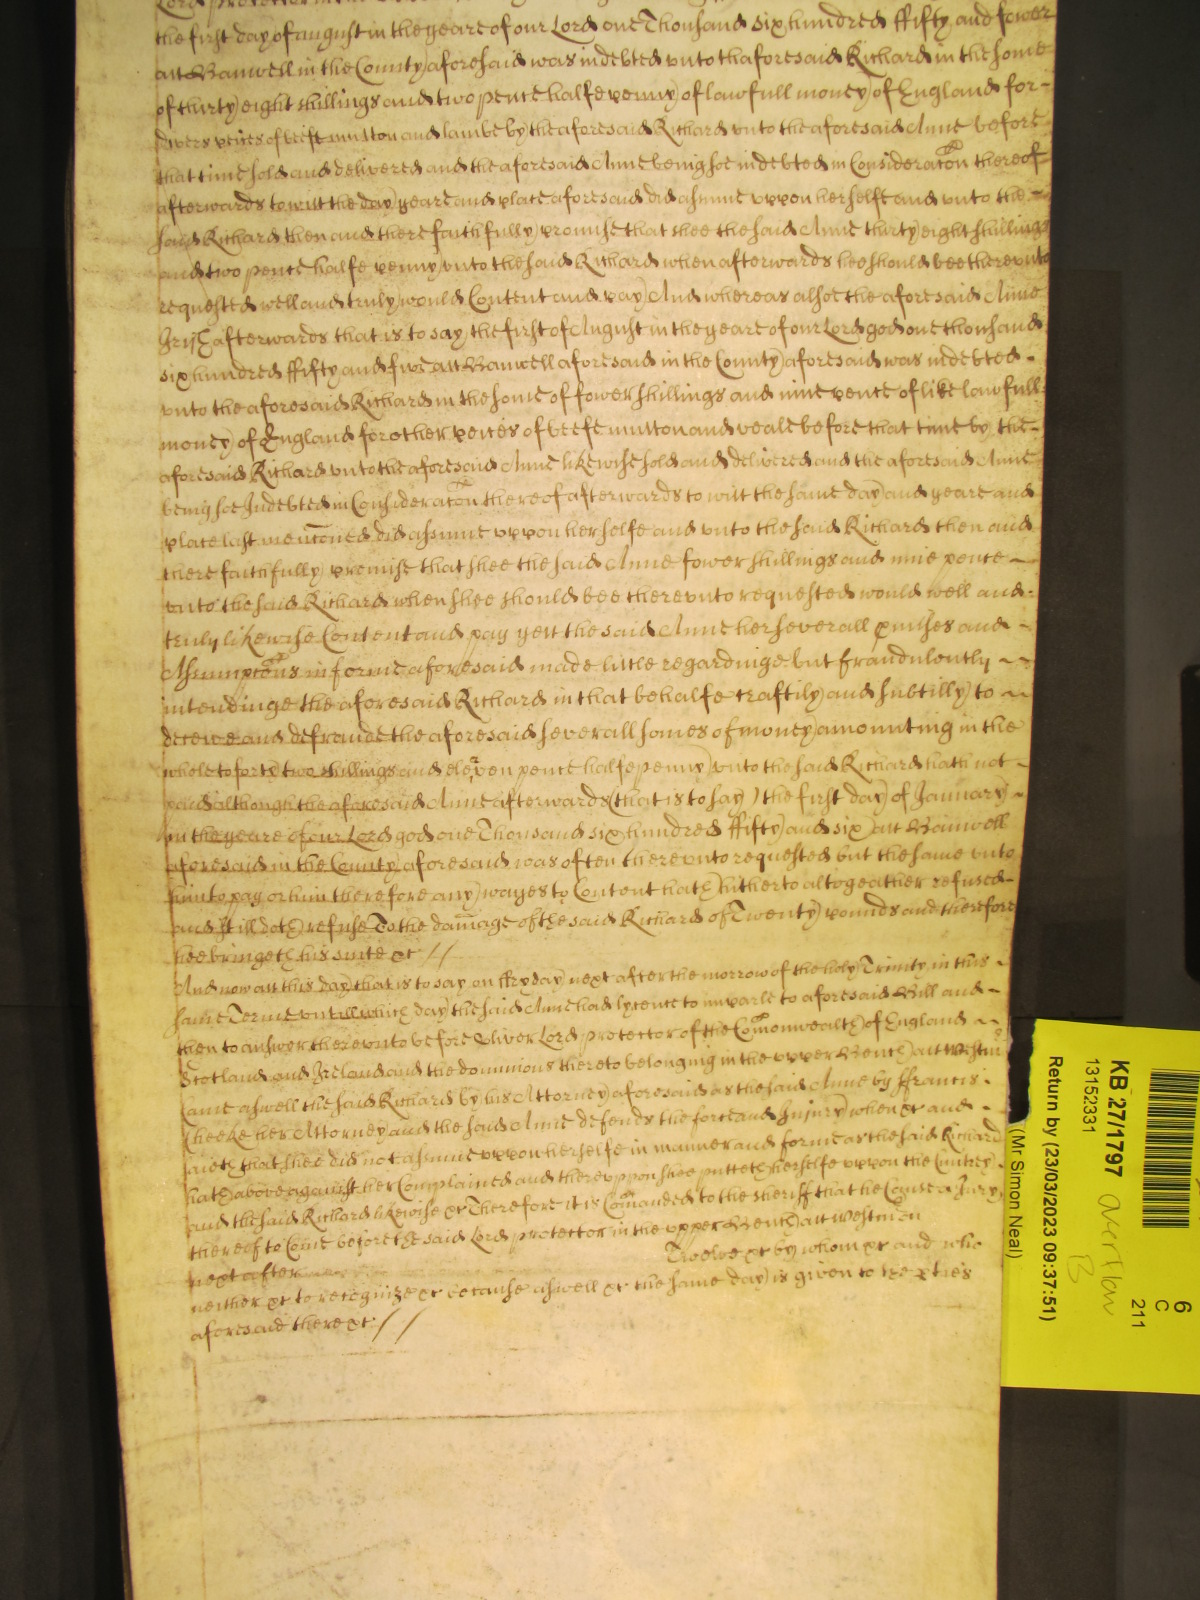 the first day of august in the yeare of our Lord one Thousand six hundred ffifty and fower
att Banwell in the County aforesaid was indebted vnto thaforesaid Richard in the some
of thirty eight shillings and two pence halfe penny of lawfull money of England for
divers peices of beefe mutton and lambe by the aforesaid Richard vnto the aforesaid Anne before
that time sold and delivered and the aforesaid Anne being soe indebted in Consideracon thereof
afterwards to witt the day yeare and place aforesaid did assume vppon herselfe and vnto the
said Richard then and there faithfully promise that shee the said Anne thirty eight shillings
and two pence halfe penny vnto the said Richard when afterwards hee should bee therevnto
requested well and truly would Content and pay And whereas alsoe the aforesaid Anne
Irish afterwards that is to say the first of August in the yeare of our Lord god one thousand
six hundred ffifty and five att Banwell aforesaid in the County aforesaid was indebted
vnto the aforesaid Richard in the some of fower shillings and nine pence of like lawfull
money of England for other peices of beefe mutton and veale before that time by the
aforesaid Richard vnto the aforesaid Anne likewise sold and delivered and the aforesaid Anne
being soe Indebted in Consideracon thereof afterwards to witt the same day and yeare and
place last menconed did assume vppon herselfe and vnto the said Richard then and
there faithfully promise that shee the said Anne fower shillings and nine pence
vnto the said Richard when shee should bee therevnto requested would well and
truly likewise Content and pay yett the said Anne her severall pmises and
Assumpcons in forme aforesaid made little regardinge but fraudulently
intendinge the aforesaid Richard in that behalfe craftily and subtilly to
deceive and defraude the aforesaid severall somes of money amounting in the
whole to forty two shillings and eleaven pence halfe penny vnto the said Richard hath not
paid although the aforesaid Anne afterwards (that is to say) the first day of January
in the yeare of our Lord god one Thousand six hundred ffifty and six att Banwell
aforesaid in the County aforesaid was often therevnto requested but the same vnto
him to pay or him therefore any wayes to Content hath hitherto altogeather refused
and still doth refuse To the damage of the said Richard of Twenty pounds and therefore
hee bringeth his suite &c //
And now att this day that is to say on ffryday next after the morrow of the holy Trinity in this
same Terme vntill which day the said Anne had lycence to imparle to aforesaid Bill and
then to answer therevnto before Oliver Lord protector of the Comonwealth of England
Scotland and Ireland and the dominions thereto belonging in the vpper Bench att Westm
Came aswell the said Richard by his Attorney aforesaid as the said Anne by ffrancis
Cheeke her Attorney and the said Anne defends the force and Injury when &c and
saieth that shee did not assume vppon herselfe in manner and forme as the said Richard
hath above against her Complained and therevppon shee putteth herselfe vppon the Cuntrey
and the said Richard likewise &c Therefore it is Comanded to the sheriff that he Cause a Jury
thereof to Come before the said Lord protector in the vpper Bench att Westm on
next after Twelve &c by whom &c and who
neither &c to recognize &c because aswell &c the same day is given to the pties
aforesaid there &c //
KB 27/1797
13152331
Return by (23/03/2023 09:37:51)
(Mr Simon Neal)
6
C
211
overflow
B